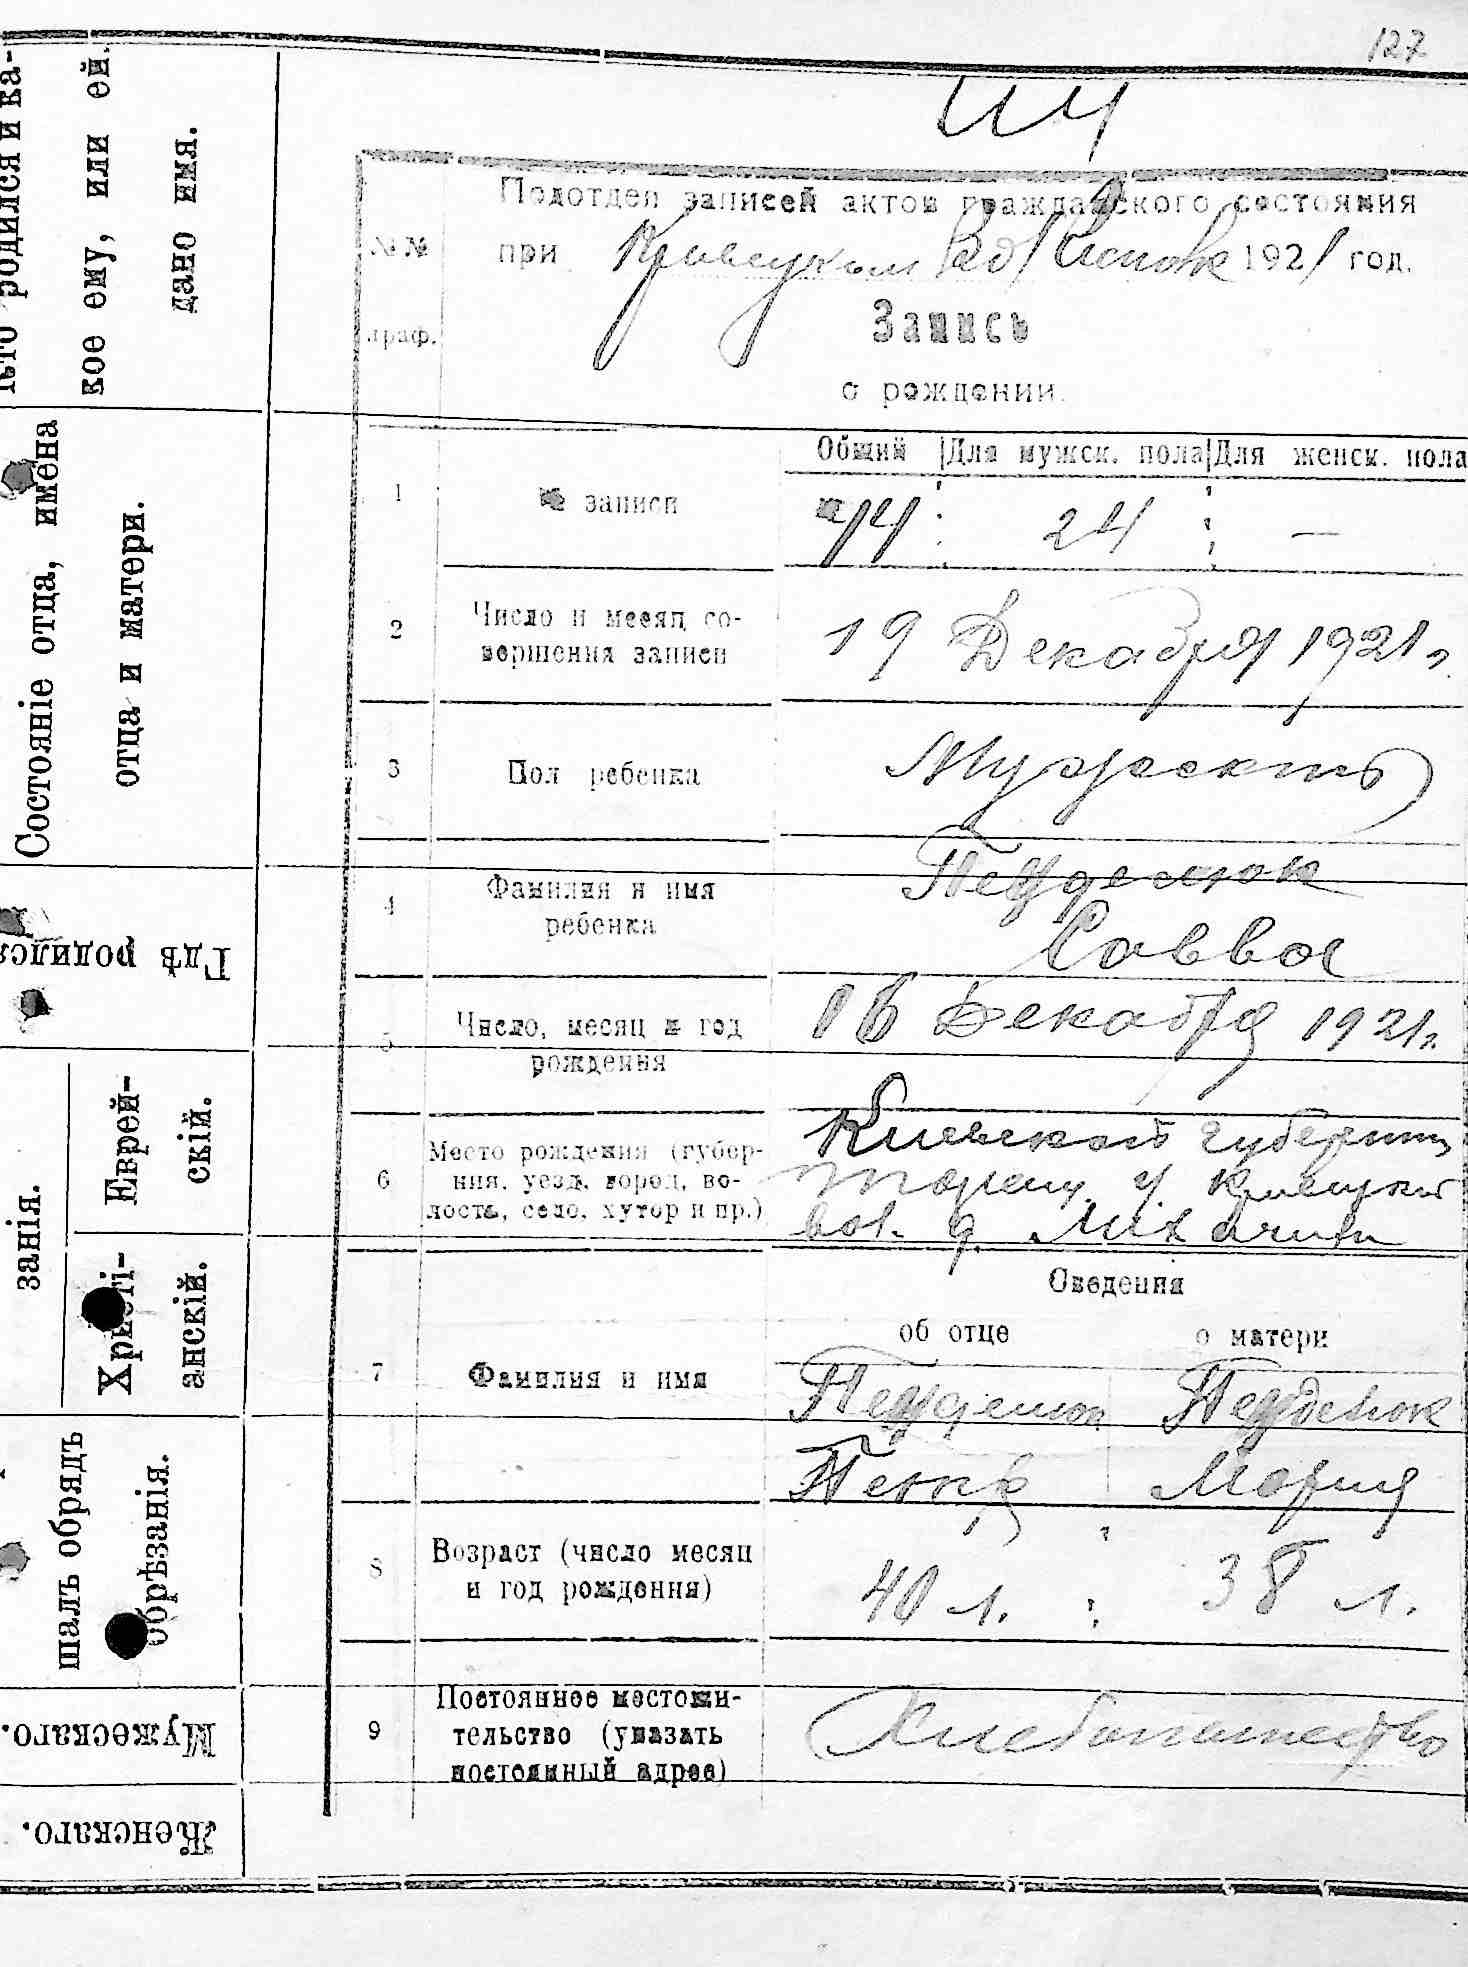 127
родился и ка-
кое ему, или ей
дано имя.
Состояніе отца, имена
отца и матери.
Гдѣ родился
занія.
Еврей-
скій.
Христі-
анскій.
шалъ обрядъ
обрѣзанія.
Мужескаго.
Женскаго.
Подотдел записей актов гражданского состояния
№№
граф.
при 1921 год.
Запись
о рождении.
Общий Для мужск. пола Для женск. пола
1 № записи 24 —
2 Число и месяц со-
вершения записи
19 Декабря 1921 г.
3 Пол ребенка Мужескъ
4 Фамилия и имя
ребенка
Савва
5 Число, месяц и год
рождения
16 Декабря 1921 г.
6 Место рождения (губер-
ния, уезд, город, во-
лость, село, хутор и пр.)
Киевской губернии
у.
вол. д.
Сведения
об отце о матери
7 Фамилия и имя
Петр Мария
8 Возраст (число месяц
и год рождения)
40 л. 38 л.
9 Постоянное местожи-
тельство (указать
постоянный адрес)
Хлебопашество